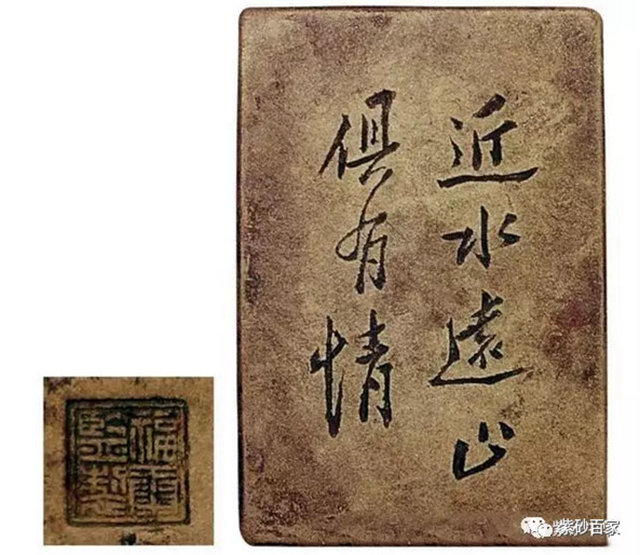 近水遠山
俱有情
福
監製
紫砂百家